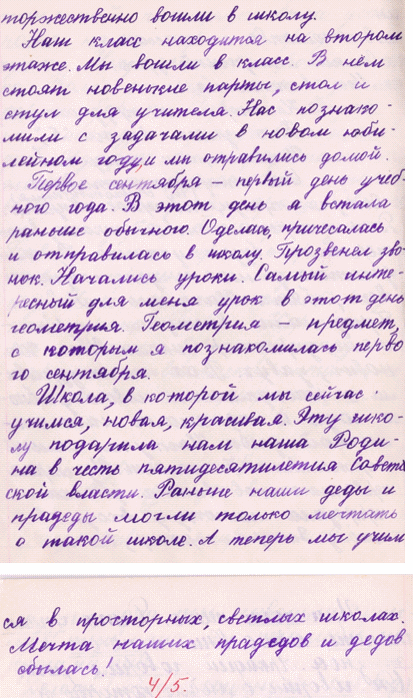 торжественно вошли в школу.
Наш класс находится на втором
этаже. Мы вошли в класс. В нём
стоят новенькие парты, стол и
стул для учителя. Нас познако-
мили с задачами в новом юби-
лейном году, и мы отправились домой.
Первое сентября – первый день учеб-
ного года. В этот день я встала
раньше обычного. Оделась, причесалась
и отправилась в школу. Прозвенел зво-
нок. Начались уроки. Самый инте-
ресный для меня урок в этот день
геометрия. Геометрия – предмет,
с которым я познакомилась перво
го сентября.
Школа, в которой мы сейчас
учимся, новая, красивая. Эту шко-
лу подарила нам наша Роди-
на в честь пятидесятилетия Совет
ской власти. Раньше наши деды и
прадеды могли только мечтать
о такой школе. А теперь мы учим
ся в просторных, светлых школах.
Мечта наших прадедов и дедов
сбылась!
4/5.